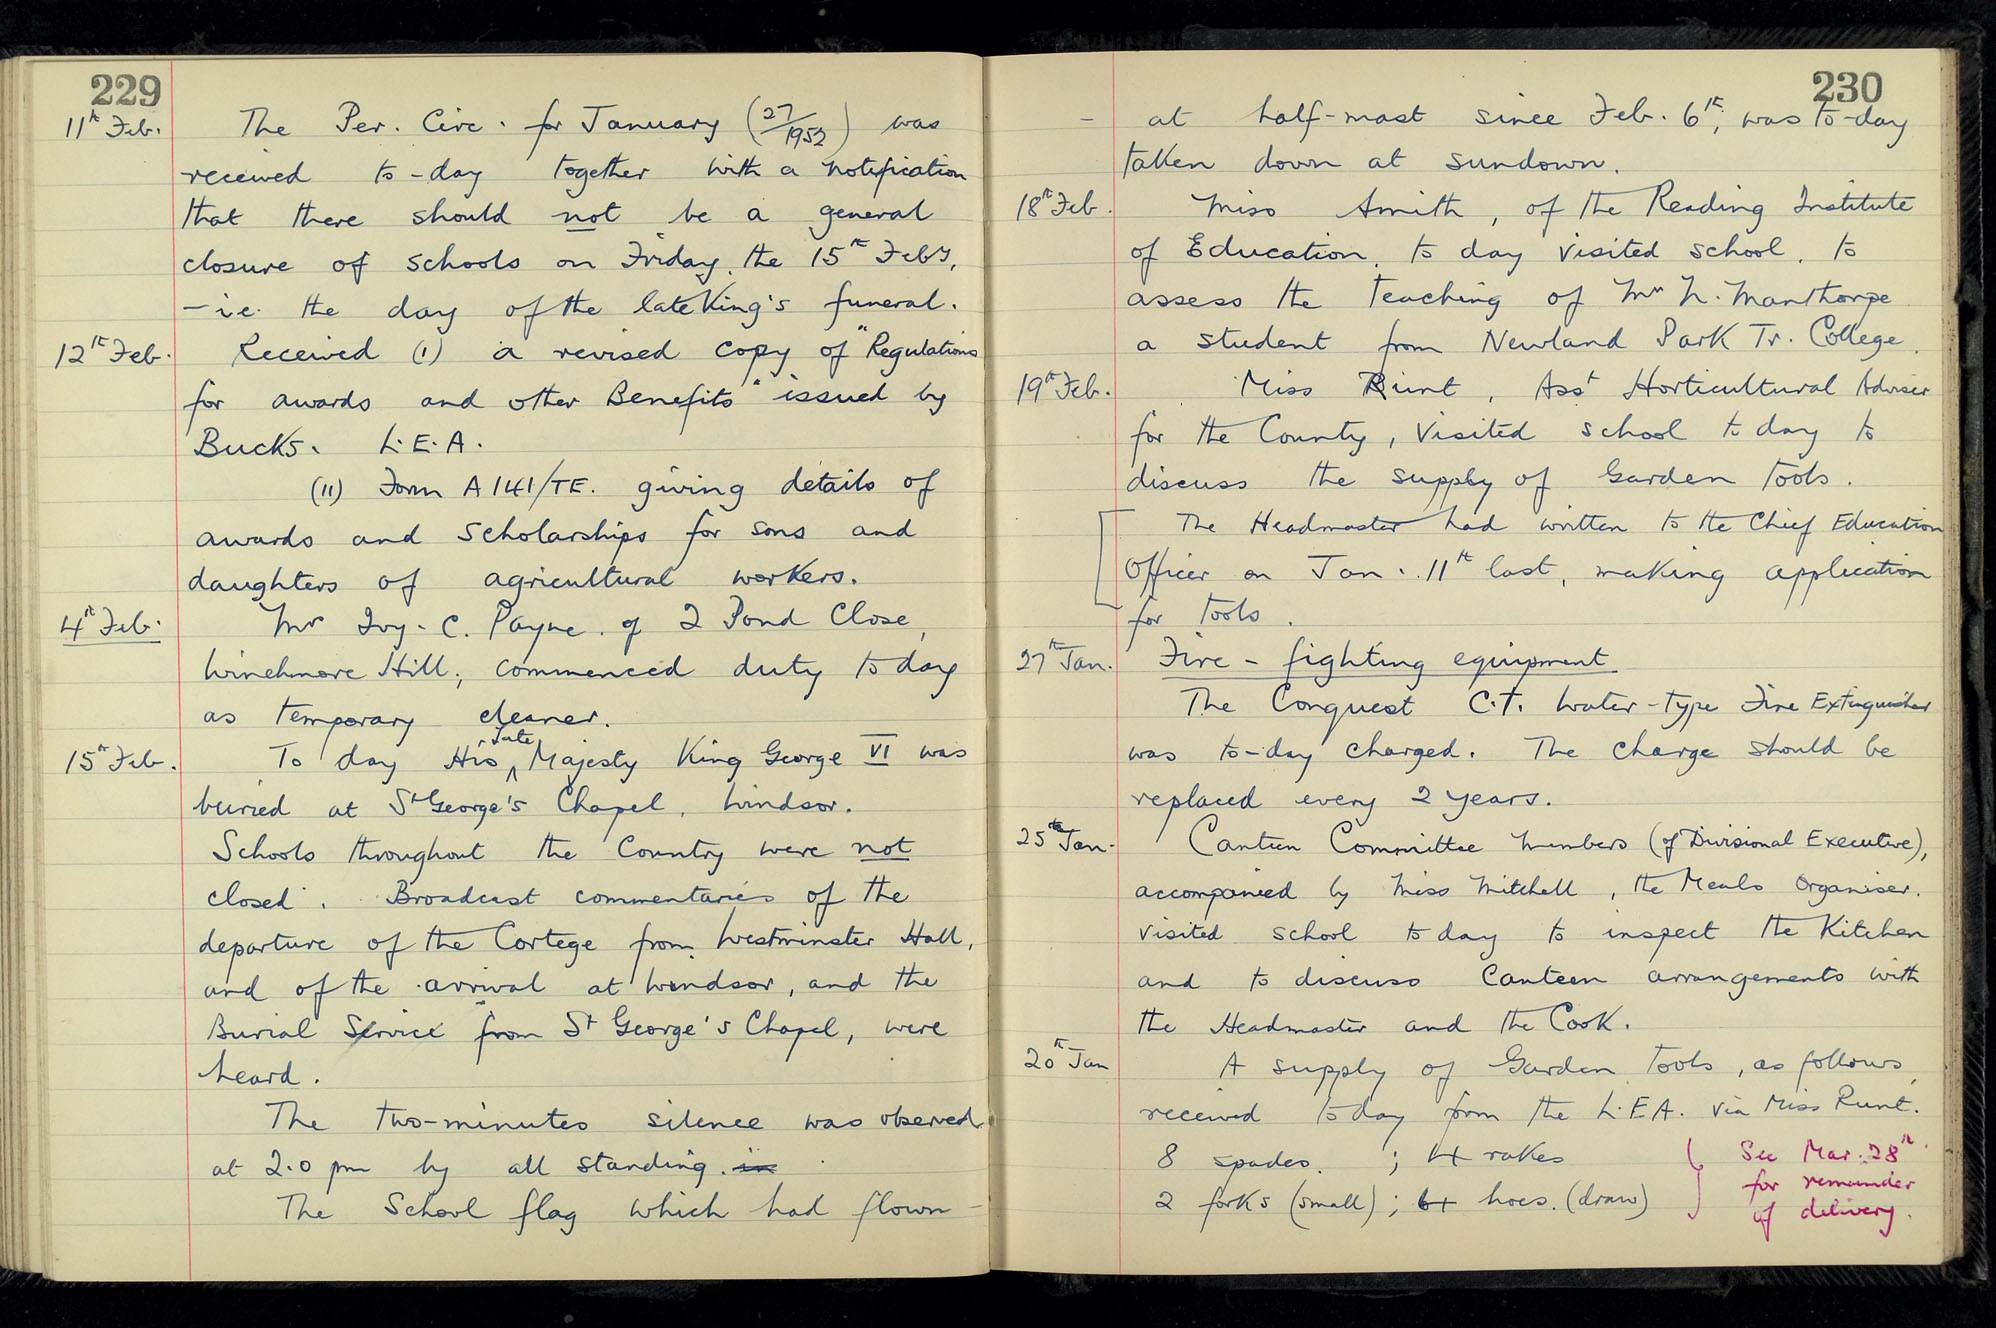 229
11th Feb. The Per. Circ. for January (27/1952) was
received to-day together with a notification
that there should not be a general
closure of schools on Friday, the 15th Feby,
- i.e. the day of the late King's funeral.
12th Feb. Received (1) a revised copy of "Regulations
for awards and other Benefits" issued by
Bucks. L.E.A.
(11) Form A 141/TE. giving details of
awards and scholarships for sons and
daughters of agricultural workers.
4th Feb. Mr Ivy. C. Payne. of 2 Pond Close,
Winchmore Hill, commenced duty to day
as temporary cleaner.
15th Feb. To day His late Majesty King George VI was
buried at St George's Chapel, Windsor.
Schools throughout the Country were not
closed. Broadcast commentaries of the
departure of the Cortege from Westminster Hall,
and of the arrival at Windsor, and the
Burial Service from St George's Chapel, were
heard.
The two-minutes silence was observed
at 2.0 pm by all standing. in
The School flag which had flown -
230
- at half-mast since Feb. 6th, was to-day
taken down at sundown.
18th Feb. Miss Smith, of the Reading Institute
of Education, to day visited school, to
assess the teaching of Mr N. Manthorpe
a student from Newland Park Tr. College.
19th Feb. Miss Runt, Asst Horticultural Adviser
for the County, visited school to day to
discuss the supply of Garden tools.
The Headmaster had written to the Chief Education
Officer on Jan. 11th last, making application
for tools.
27th Jan. Fire-fighting equipment
The Conquest C.T. Water-type Fire Extinguisher
was to-day charged. The charge should be
replaced every 2 years.
25th Jan. Canteen Committee members (of Divisional Executive),
accompanied by Miss Mitchell, the Meals Organiser.
visited school to day to inspect the Kitchen
and to discuss Canteen arrangements with
the Headmaster and the Cook.
20th Jan A supply of Garden Tools, as follows,
received to day from the L.E.A. via Miss Runt.
8 spades. ; 4 rakes
2 forks (small) ; 4 hoes. (draw)
See Mar. 28th
for remainder
of delivery.